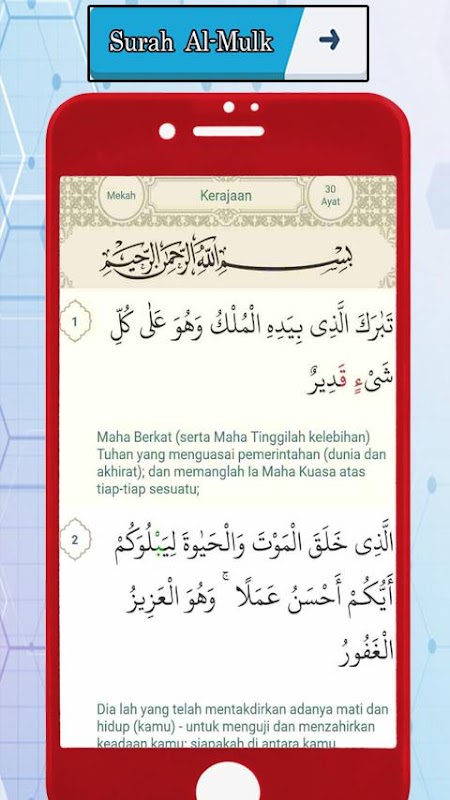 Surah Al-Mulk
Mekah
Kerajaan
30
Ayat
بِسْمِ اللَّهِ الرَّحْمَٰنِ الرَّحِيمِ
1
تَبَٰرَكَ الَّذِى بِيَدِهِ الْمُلْكُ وَهُوَ عَلَىٰ كُلِّ
شَىْءٍ قَدِيرٌ
Maha Berkat (serta Maha Tinggilah kelebihan)
Tuhan yang menguasai pemerintahan (dunia dan
akhirat); dan memanglah Ia Maha Kuasa atas
tiap-tiap sesuatu;
2
الَّذِى خَلَقَ الْمَوْتَ وَالْحَيَوٰةَ لِيَبْلُوَكُمْ
أَيُّكُمْ أَحْسَنُ عَمَلًا ۚ وَهُوَ الْعَزِيزُ
الْغَفُورُ
Dia lah yang telah mentakdirkan adanya mati dan
hidup (kamu) - untuk menguji dan menzahirkan
keadaan kamu: siapakah di antara kamu